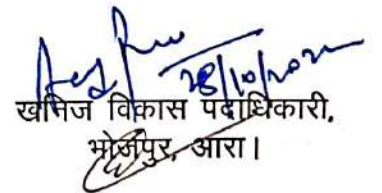 28/10/2022
खनिज विकास पदाधिकारी,
भोजपुर, आरा।